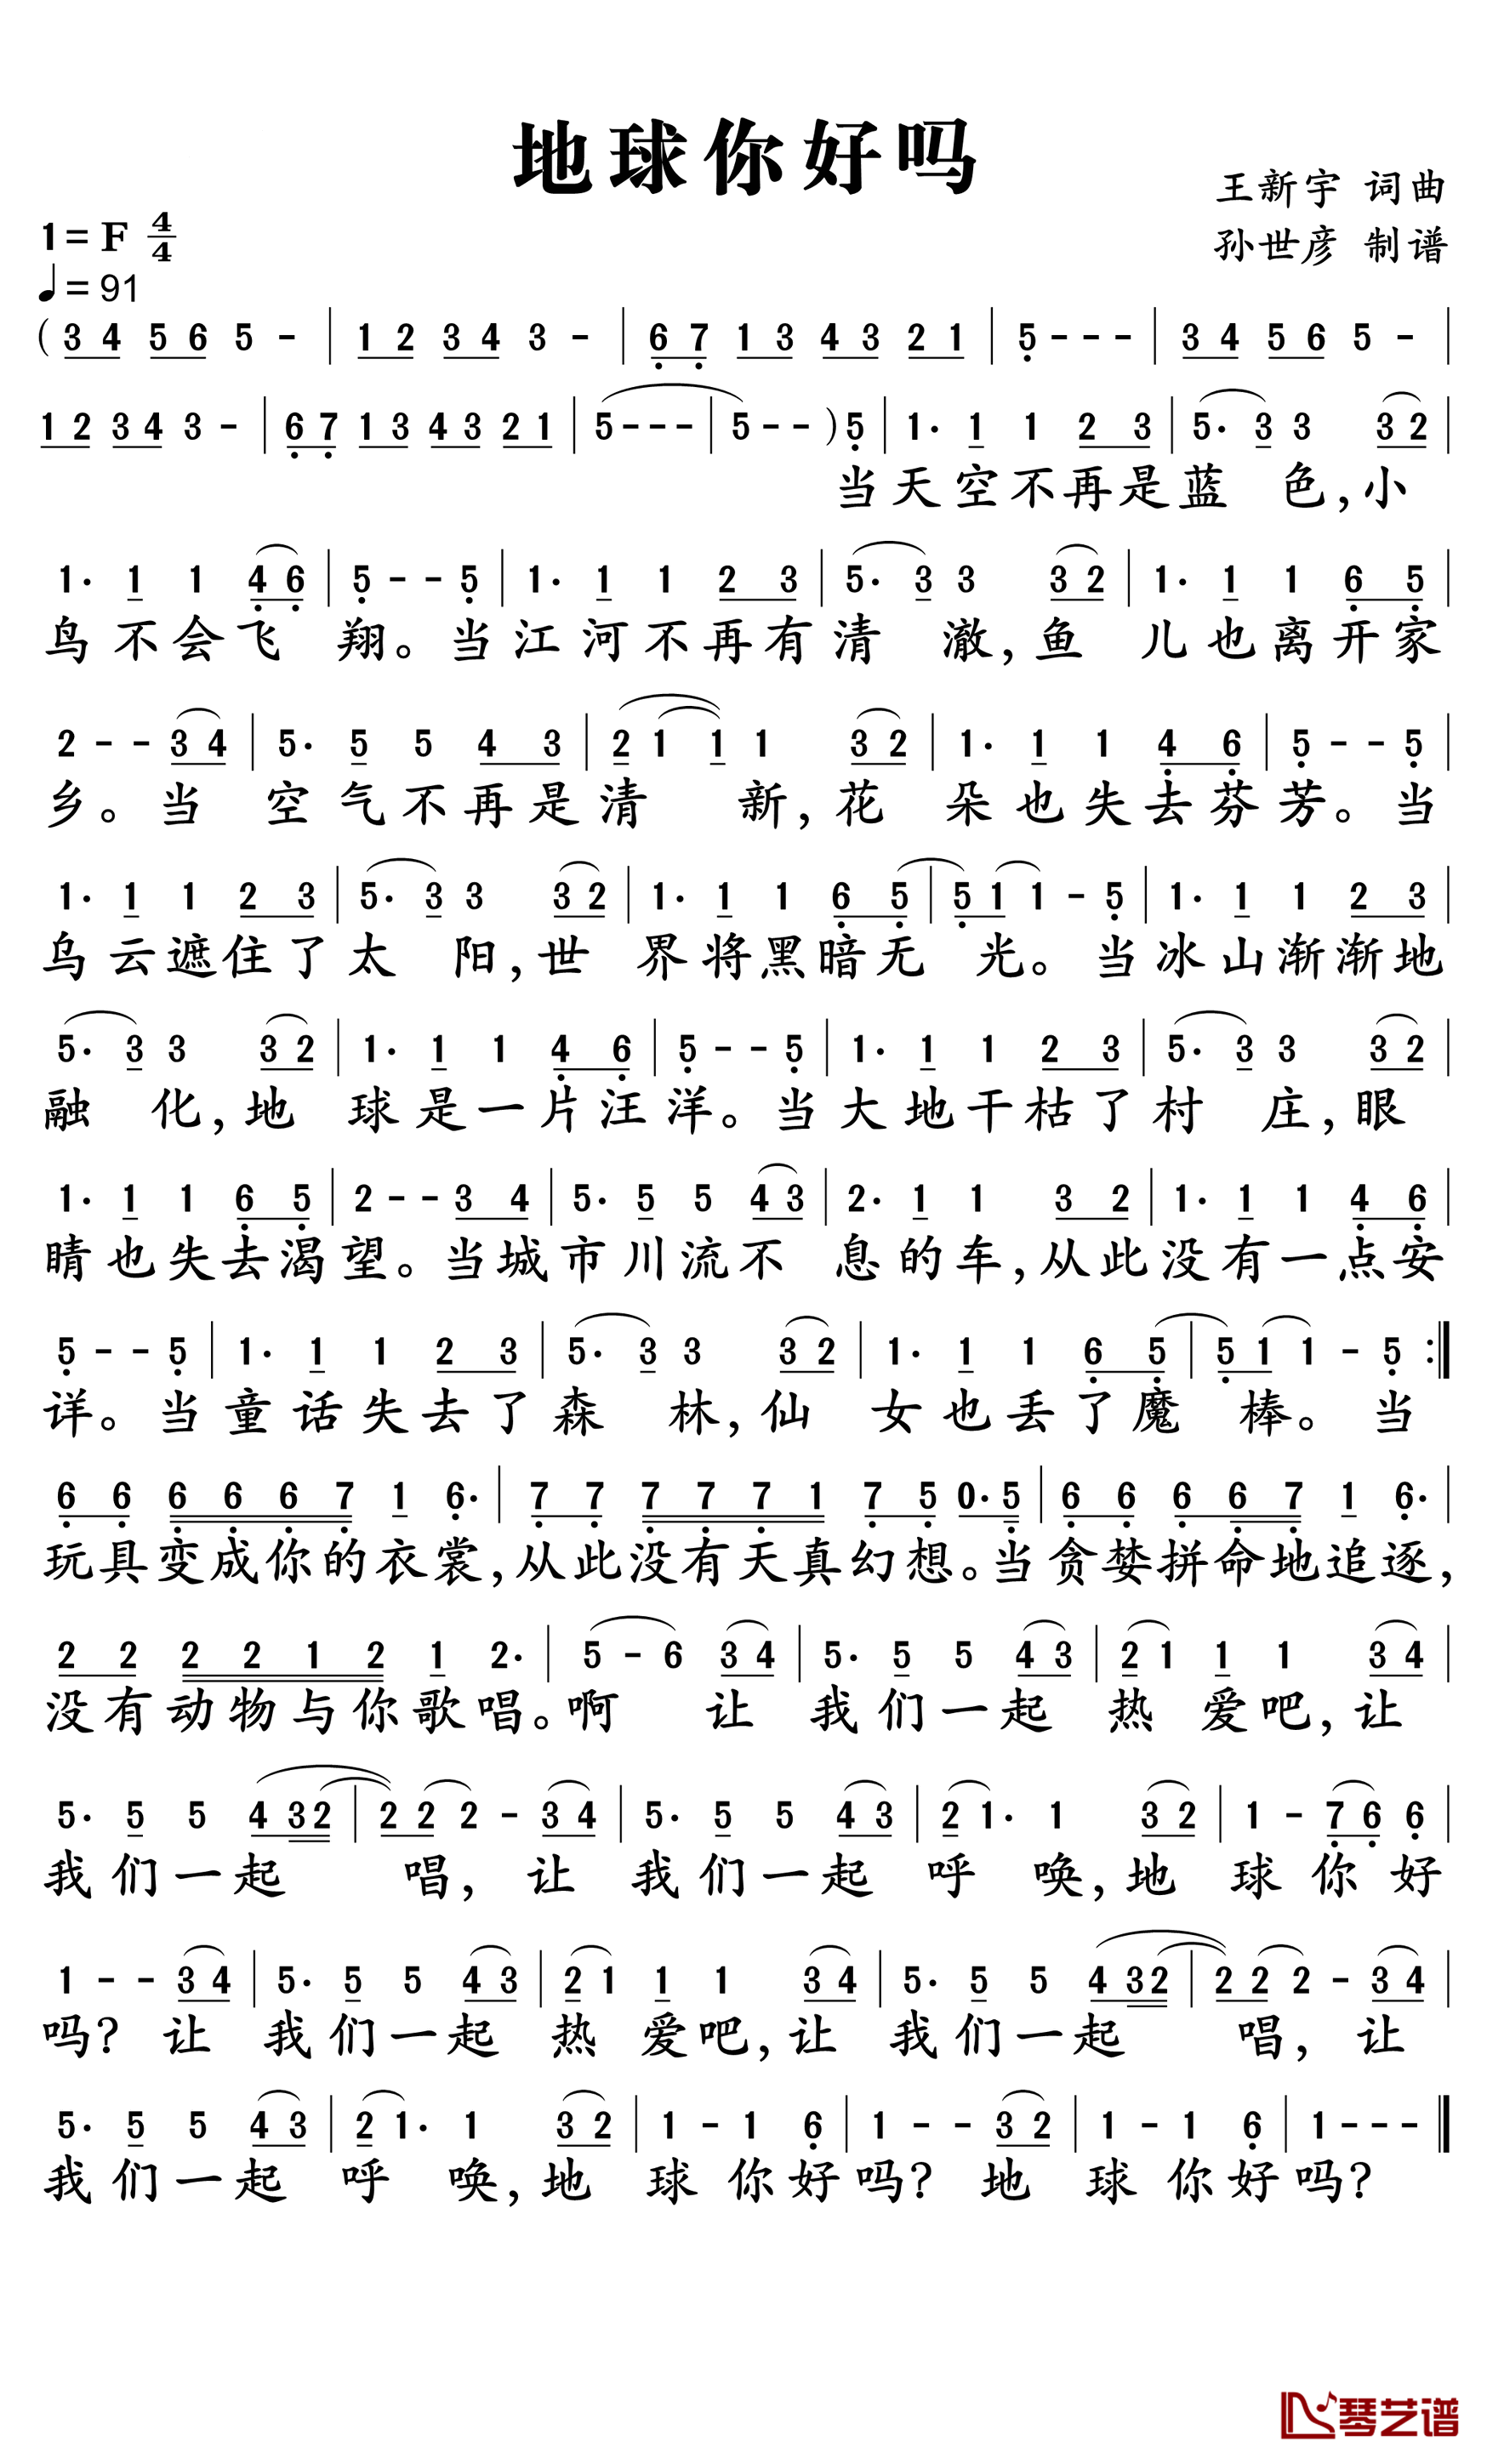 地球你好吗
王新宇 词曲
孙世彦 制谱
1= F 4/4
♩= 91
( 3 4 5 6 5 - | 1 2 3 4 3 - | 6 7 1 3 4 3 2 1 | 5 - - - | 3 4 5 6 5 - |
1 2 3 4 3 - | 6 7 1 3 4 3 2 1 | 5 - - - | 5 - - ) 5 | 1· 1 1 2 3 | 5· 3 3 3 2 |
当天空不再是蓝 色,小
1· 1 1 4 6 | 5 - - 5 | 1· 1 1 2 3 | 5· 3 3 3 2 | 1· 1 1 6 5 |
鸟不会飞 翔。当江河不再有清 澈,鱼 儿也离开家
2 - - 3 4 | 5· 5 5 4 3 | 2 1 1 1 3 2 | 1· 1 1 4 6 | 5 - - 5 |
乡。当 空气不再是清 新,花 朵也失去芬芳。当
1· 1 1 2 3 | 5· 3 3 3 2 | 1· 1 1 6 5 | 5 1 1 - 5 | 1· 1 1 2 3 |
乌云遮住了太 阳,世 界将黑暗无 光。当冰山渐渐地
5· 3 3 3 2 | 1· 1 1 4 6 | 5 - - 5 | 1· 1 1 2 3 | 5· 3 3 3 2 |
融 化,地 球是一片汪洋。当大地干枯了村 庄,眼
1· 1 1 6 5 | 2 - - 3 4 | 5· 5 5 4 3 | 2· 1 1 3 2 | 1· 1 1 4 6 |
睛也失去渴望。当城市川流不 息的车,从此没有一点安
5 - - 5 | 1· 1 1 2 3 | 5· 3 3 3 2 | 1· 1 1 6 5 | 5 1 1 - 5 :|
详。当童话失去了森 林,仙 女也丢了魔 棒。当
6 6 6 6 6 7 1 6· | 7 7 7 7 7 1 7 5 0· 5 | 6 6 6 6 7 1 6· |
玩具变成你的衣裳,从此没有天真幻想。当贪婪拼命地追逐,
2 2 2 2 1 2 1 2· | 5 - 6 3 4 | 5· 5 5 4 3 | 2 1 1 1 3 4 |
没有动物与你歌唱。啊 让 我们一起 热 爱吧,让
5· 5 5 4 3 2 | 2 2 2 - 3 4 | 5· 5 5 4 3 | 2 1· 1 3 2 | 1 - 7 6 6 |
我们一起 唱, 让 我们一起 呼 唤,地 球 你 好
1 - - 3 4 | 5· 5 5 4 3 | 2 1 1 1 3 4 | 5· 5 5 4 3 2 | 2 2 2 - 3 4 |
吗? 让 我们一起 热 爱吧,让 我们一起 唱, 让
5· 5 5 4 3 | 2 1· 1 3 2 | 1 - 1 6 | 1 - - 3 2 | 1 - 1 6 | 1 - - - |
我们一起 呼 唤,地 球 你好吗? 地 球 你好吗?
琴艺谱